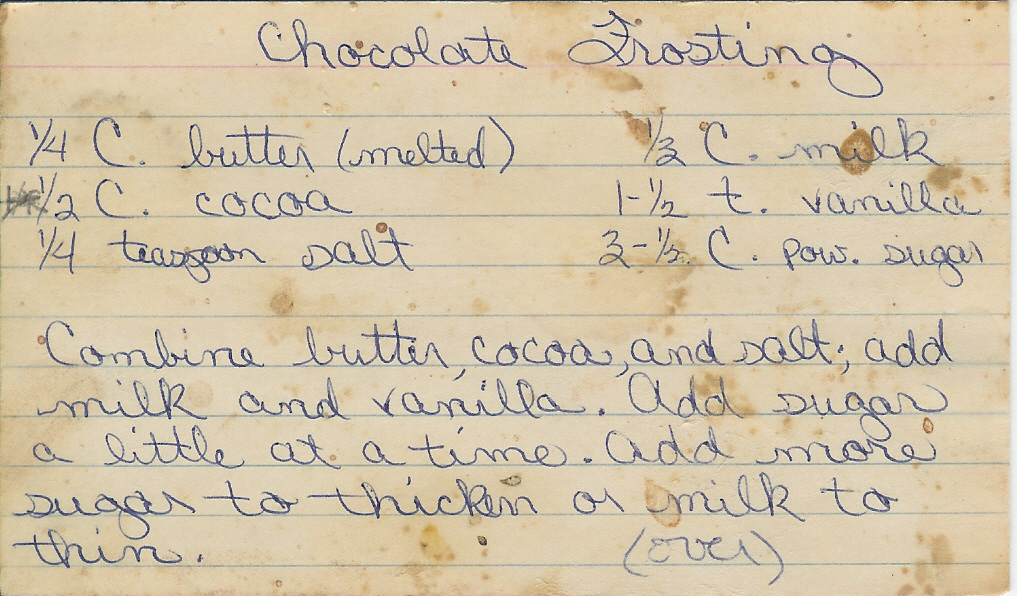 Chocolate Frosting
1/4 C. butter (melted) 1/3 C. milk
1/2 C. cocoa 1-1/2 t. vanilla
1/4 teaspoon salt 3-1/2 C. pow. sugar
Combine butter, cocoa, and salt; add
milk and vanilla. Add sugar
a little at a time. Add more
sugar to thicken or milk to
thin. (over)